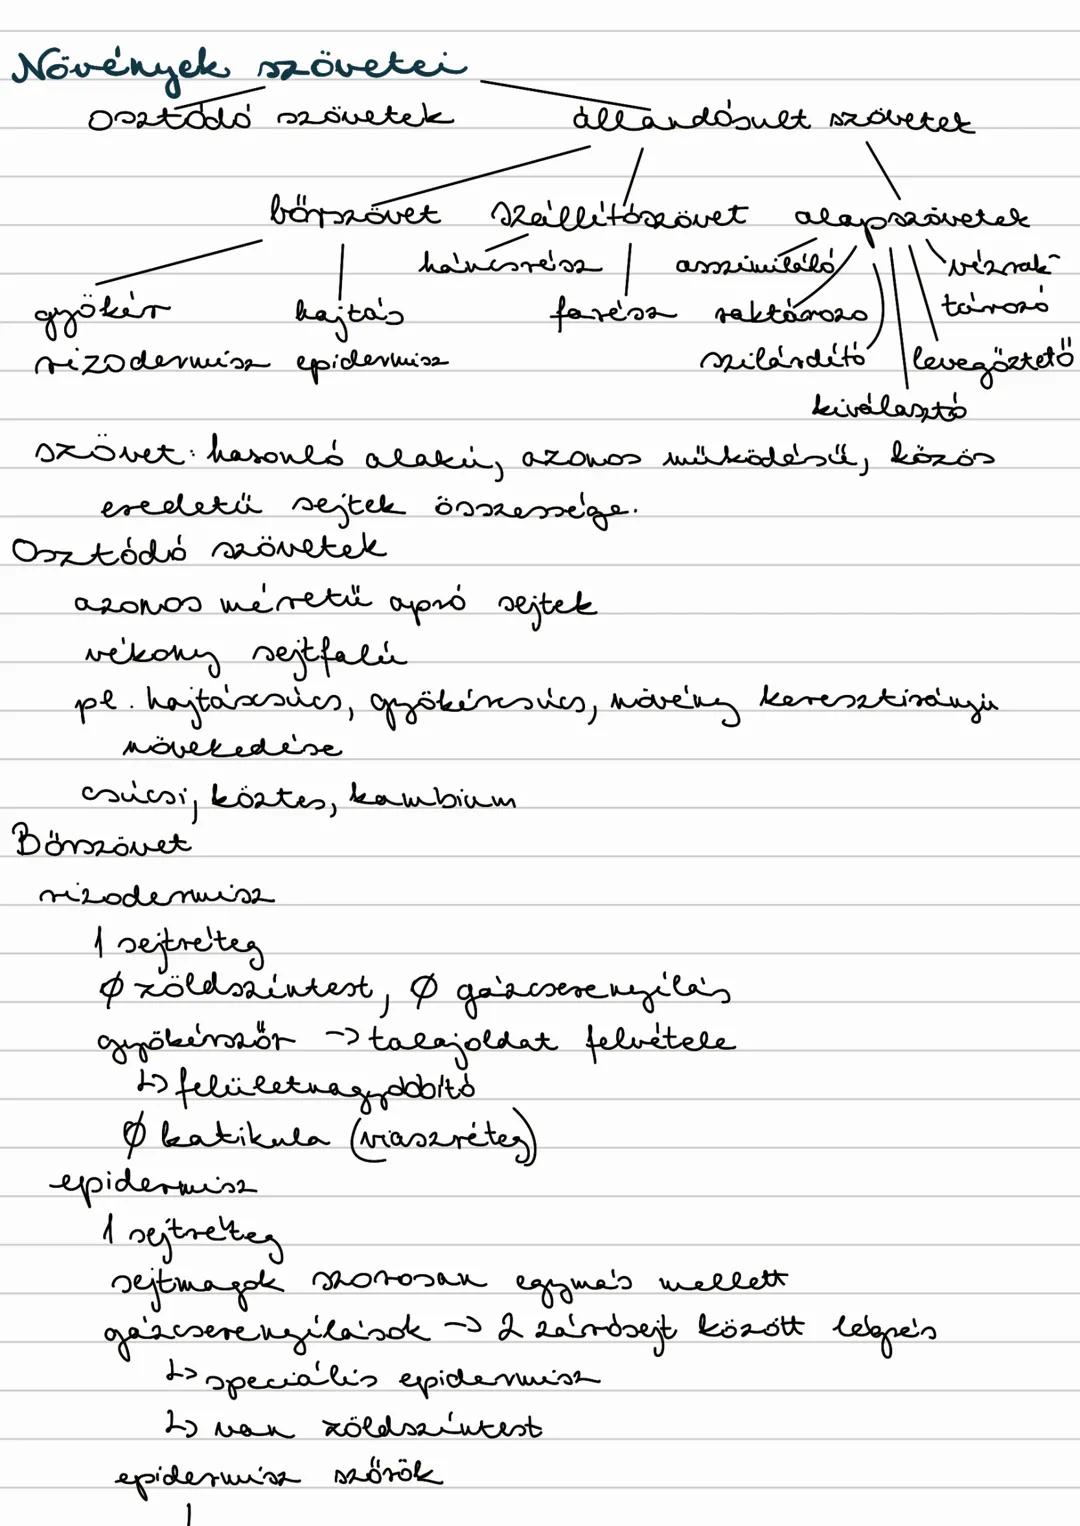 Növények szövetei
osztódó szövetek állandósult szövetek
bőrszövet szállítószövet alapszövetek
háncsrész asszimiláló víztárak-
gyökér hajtás farész raktározó tározó
rizodermisz epidermisz szilárdító levegőztető
kiválasztó
szövet: hasonló alakú, azonos működésű, közös
eredetű sejtek összessége.
Osztódó szövetek
azonos méretű apró sejtek
vékony sejtfalú
pl. hajtáscsúcs, gyökércsúcs, növény keresztirányú
növekedése
csúcsi, köztes, kambium
Bőrszövet
rizodermisz
1 sejtréteg
Ø zöldszíntest, Ø gázcserenyílás
gyökérszőr -> talajoldat felvétele
↳ felületnagyobbító
Ø katikula (viaszréteg)
epidermisz
1 sejtréteg
sejtmagok szorosan egymás mellett
gázcserenyílások -> 2 zárósejt között légrés
↳ speciális epidermisz
↳ van zöldszíntest
epidermisz szőrök